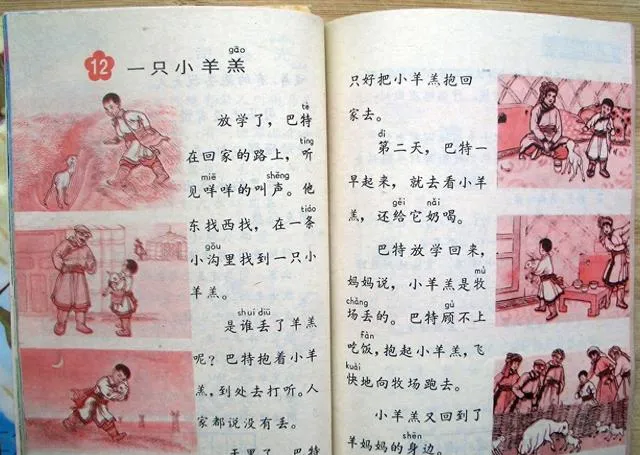 12 一只小羊羔
gāo
tè
放学了，巴特
tīng
在回家的路上，听
miē shēng
见咩咩的叫声。他
tiáo
东找西找，在一条
gōu
小沟里找到一只小
羊羔。
shuí diū
是谁丢了羊羔
呢？巴特抱着小羊
羔，到处去打听。人
家都说没有丢。
天黑了，巴特
只好把小羊羔抱回
家去。
dì
第二天，巴特一
早起来，就去看小羊
gěi nǎi
羔，还给它奶喝。
巴特放学回来，
mù
妈妈说，小羊羔是牧
chǎng gù
场丢的。巴特顾不上
fàn
吃饭，抱起小羊羔，飞
kuài
快地向牧场跑去。
小羊羔又回到了
shēn
羊妈妈的身边。